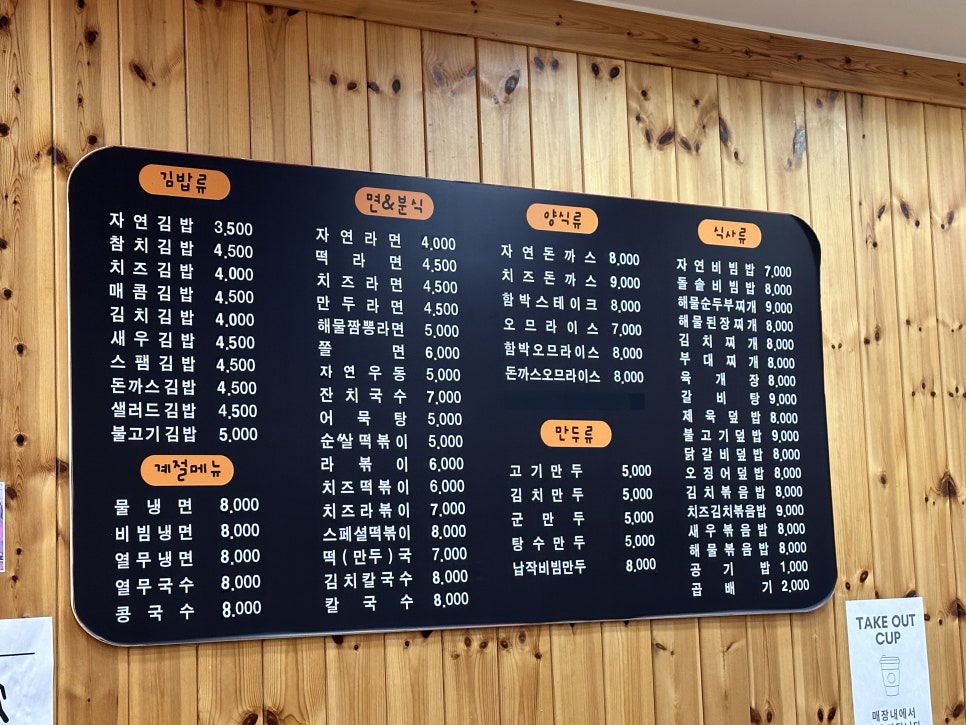 김밥류
자연김밥 3,500
참치김밥 4,500
치즈김밥 4,000
매콤김밥 4,500
김치김밥 4,000
새우김밥 4,500
스팸김밥 4,500
돈까스김밥 4,500
샐러드김밥 4,500
불고기김밥 5,000
계절메뉴
물냉면 8,000
비빔냉면 8,000
열무냉면 8,000
열무국수 8,000
콩국수 8,000
면&분식
자연라면 4,000
떡라면 4,500
치즈라면 4,500
만두라면 4,500
해물짬뽕라면 5,000
쫄면 6,000
자연우동 5,000
잔치국수 7,000
어묵탕 5,000
순쌀떡볶이 5,000
라볶이 6,000
치즈떡볶이 6,000
치즈라볶이 7,000
스페셜떡볶이 8,000
떡(만두)국 7,000
김치칼국수 8,000
칼국수 8,000
양식류
자연돈까스 8,000
치즈돈까스 9,000
함박스테이크 8,000
오므라이스 7,000
함박오므라이스 8,000
돈까스오므라이스 8,000
만두류
고기만두 5,000
김치만두 5,000
군만두 5,000
탕수만두 5,000
납작비빔만두 8,000
식사류
자연비빔밥 7,000
돌솥비빔밥 8,000
해물순두부찌개 9,000
해물된장찌개 8,000
김치찌개 8,000
부대찌개 8,000
육개장 8,000
갈비탕 9,000
제육덮밥 8,000
불고기덮밥 9,000
닭갈비덮밥 8,000
오징어덮밥 8,000
김치볶음밥 8,000
치즈김치볶음밥 9,000
새우볶음밥 8,000
해물볶음밥 8,000
공기밥 1,000
곱배기 2,000
TAKE OUT
CUP
매장내에서